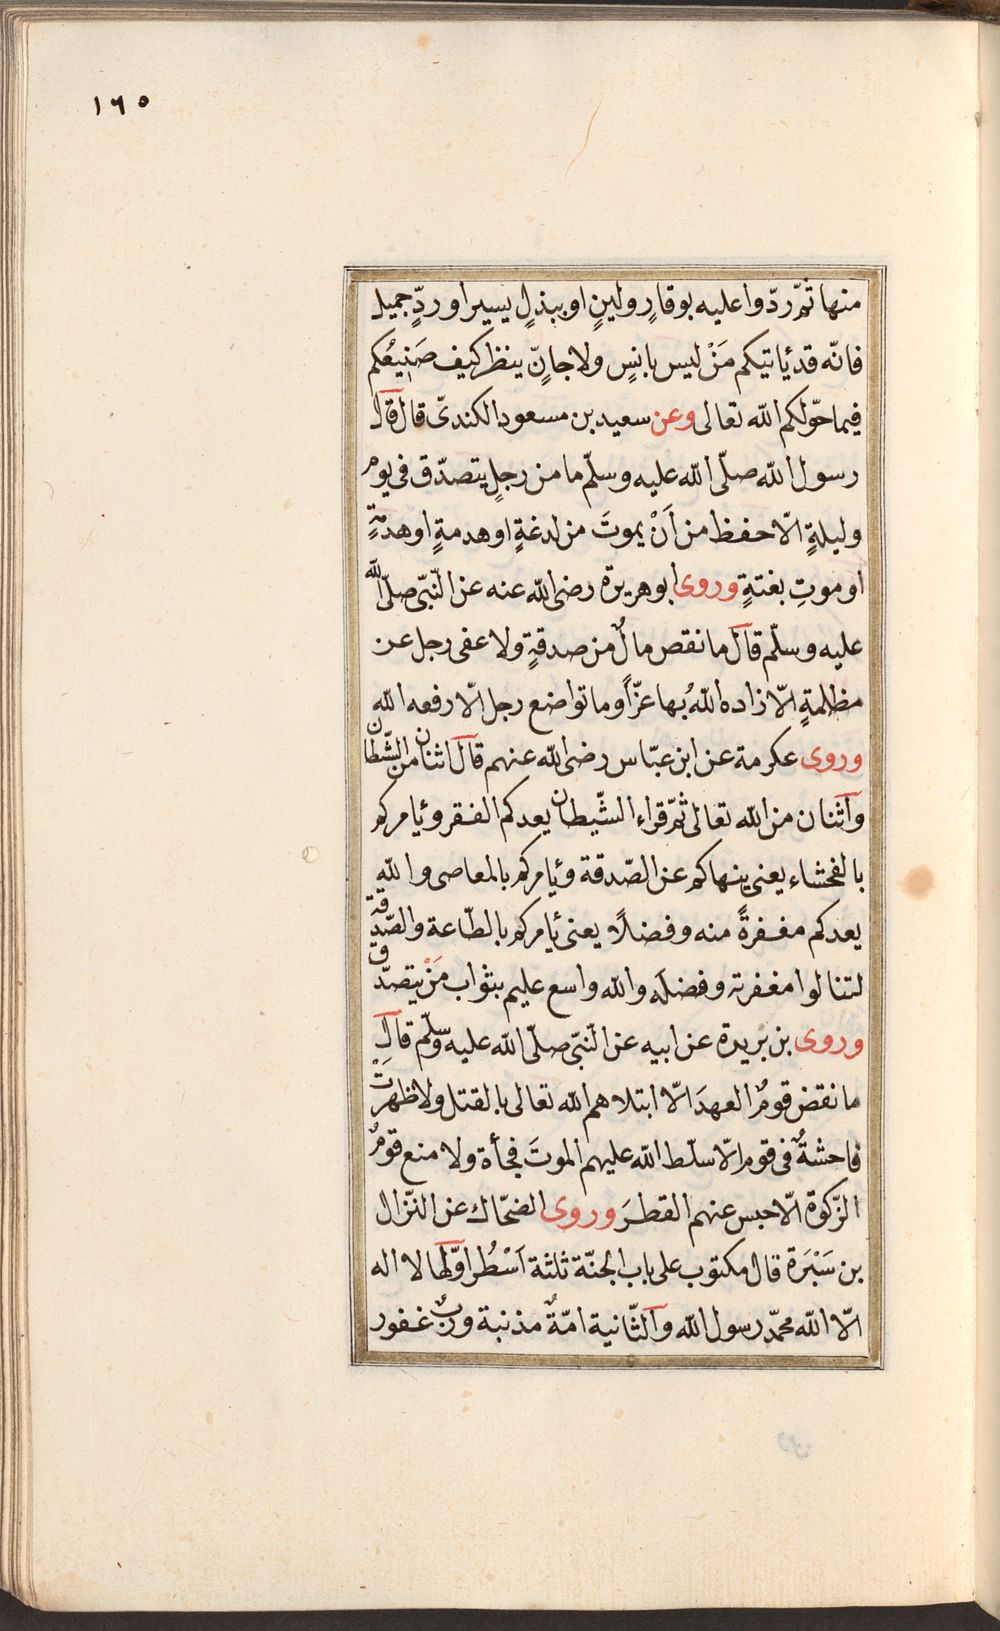 ١٦٥
منها ثمّ ردّوا عليه بوقارٍ ولينٍ او ببذلٍ يسير او ردٍّ جميل
فانّه قد ئاتيكم مَنْ ليس بانسٍ ولا جانٍّ ينظر كيف صَنِيعُكم
فيما خوّلكم الله تعالى وعن سعيد بن مسعود الكندىّ قال قال
رسول الله صلّى الله عليه وسلّم ما من رجلٍ يتصدّق فى يوم
وليلةٍ الّا حفظ من اَنْ يموتَ من لدغةٍ او هدمةٍ او هدمةٍ
او موتِ بغتةٍ وروى ابو هريرة رضى الله عنه عن النّبىّ صلّى الله
عليه وسلّم قال ما نقص مالٌ من صدقةٍ ولا عفى رجل عن
مظلمةٍ الّا زاده اللهُ بها عزّاً وما تواضع رجل الّا رفعه الله
وروى عكرمة عن ابن عبّاس رضى الله عنهم قال اثنان من الشّيطان
واثنان من الله تعالى ثمّ قراء الشّيطان يعدكم الفقر وئامركم
بالفحشاء يعنى ينهاكم عن الصّدقة وئامركم بالمعاصى والله
يعدكم مغفرةً منه وفضلًا يعنى ئامركم بالطّاعة والصّدقة
لتنالوا مغفرته وفضله والله واسع عليم بثواب مَنْ يتصدّق
وروى بن بريدة عن ابيه عن النّبىّ صلّى الله عليه وسلّم قال
ما نقض قومٌ العهدَ الّا ابتلاهم الله تعالى بالقتل ولا ظهرَتْ
فاحشةٌ فى قوم الّا سلّط الله عليهم الموتَ فجأة ولا منع قومٌ
الزّكوة الّا حبس عنهم القطرَ وروى الضحّاك عن النّزال
بن سَبْرَة قال مكتوب على باب الجنّة ثلثة اَسْطُر اوّلها لا اله
الّا الله محمّد رسول الله والثّانية امّةٌ مذنبة وربٌ غفور